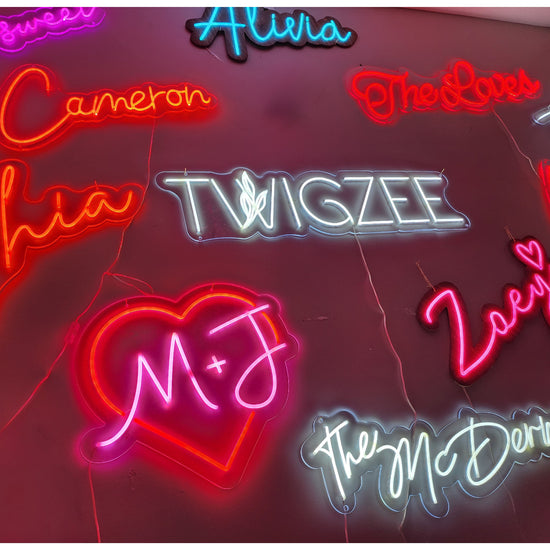 sweet
Alivia
Cameron
The Loves
hia
TWIGZEE
Zoey
M+J
The McDer